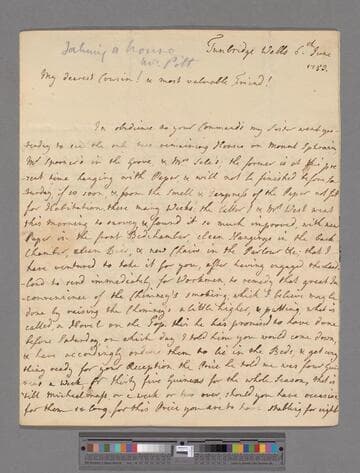 Taking a house
Mr. Pitt
Tunbridge Wells 6.th June
1753.
My dearest Cousin! & most valuable Friend!
In obedience to your Commands my Sister went yes-
terday to see the only two remaining Houses on Mount Ephraim
Mr in the Grove & Mrs. the former is at this pre-
sent time hanging with Paper & will not be finished before Sa-
turday if so soon, & from the Smell & Dampness of the Paper not fit
for Habitation these many Weeks. the latter I & Mr. West went
this morning to survey & found it so much improved, with new
Paper in the front Bedchamber, clean Hangings in the back
Chamber, clean Beds, & new Chairs in the Parlour &c. that I
have ventured to take it for you, after having engaged the Land-
lord to send immediately for Workmen, to remedy that great In-
convenience of the Chimney's smoking, which I believe may be
done by raising the Chimney a little higher, & putting what is
called a Hovel on the Top. this he has promised to have done
before Saturday, on which day I told him you would come down,
& have accordingly ordered them to lie in the Beds, & get every
thing ready for your Reception. the Price he told me was four Gui-
neas a Week, or thirty five Guineas for the whole Season, that is
till Michaelmass, or a week or two over, should you have occasion
for them so long. for this Price you are to have Stabling for eight